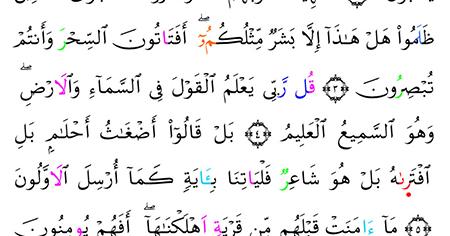 ظَلَمُوا۟ هَلْ هَـٰذَآ إِلَّا بَشَرٌ مِّثْلُكُمُۥٓ ۖ أَفَتَاتُونَ ٱلسِّحْرَ وَأَنتُمْ
تُبْصِرُونَ ﴿٣﴾ قُل رَّبِّى يَعْلَمُ ٱلْقَوْلَ فِى ٱلسَّمَآءِ وَٱلَارْضِ ۖ
وَهُوَ ٱلسَّمِيعُ ٱلْعَلِيمُ ﴿٤﴾ بَلْ قَالُوٓا۟ أَضْغَـٰثُ أَحْلَـٰمِۭ بَلِ
ٱفْتَرىٰهُ بَلْ هُوَ شَاعِرٌ فَلْيَاتِنَا بِـَٔايَةٍ كَمَآ أُرْسِلَ ٱلَاوَّلُونَ
﴿٥﴾ مَآ ءَامَنَتْ قَبْلَهُم مِّن قَرْيَةٍ اَهْلَكْنَـٰهَآ ۖ أَفَهُمْ يُومِنُونَ